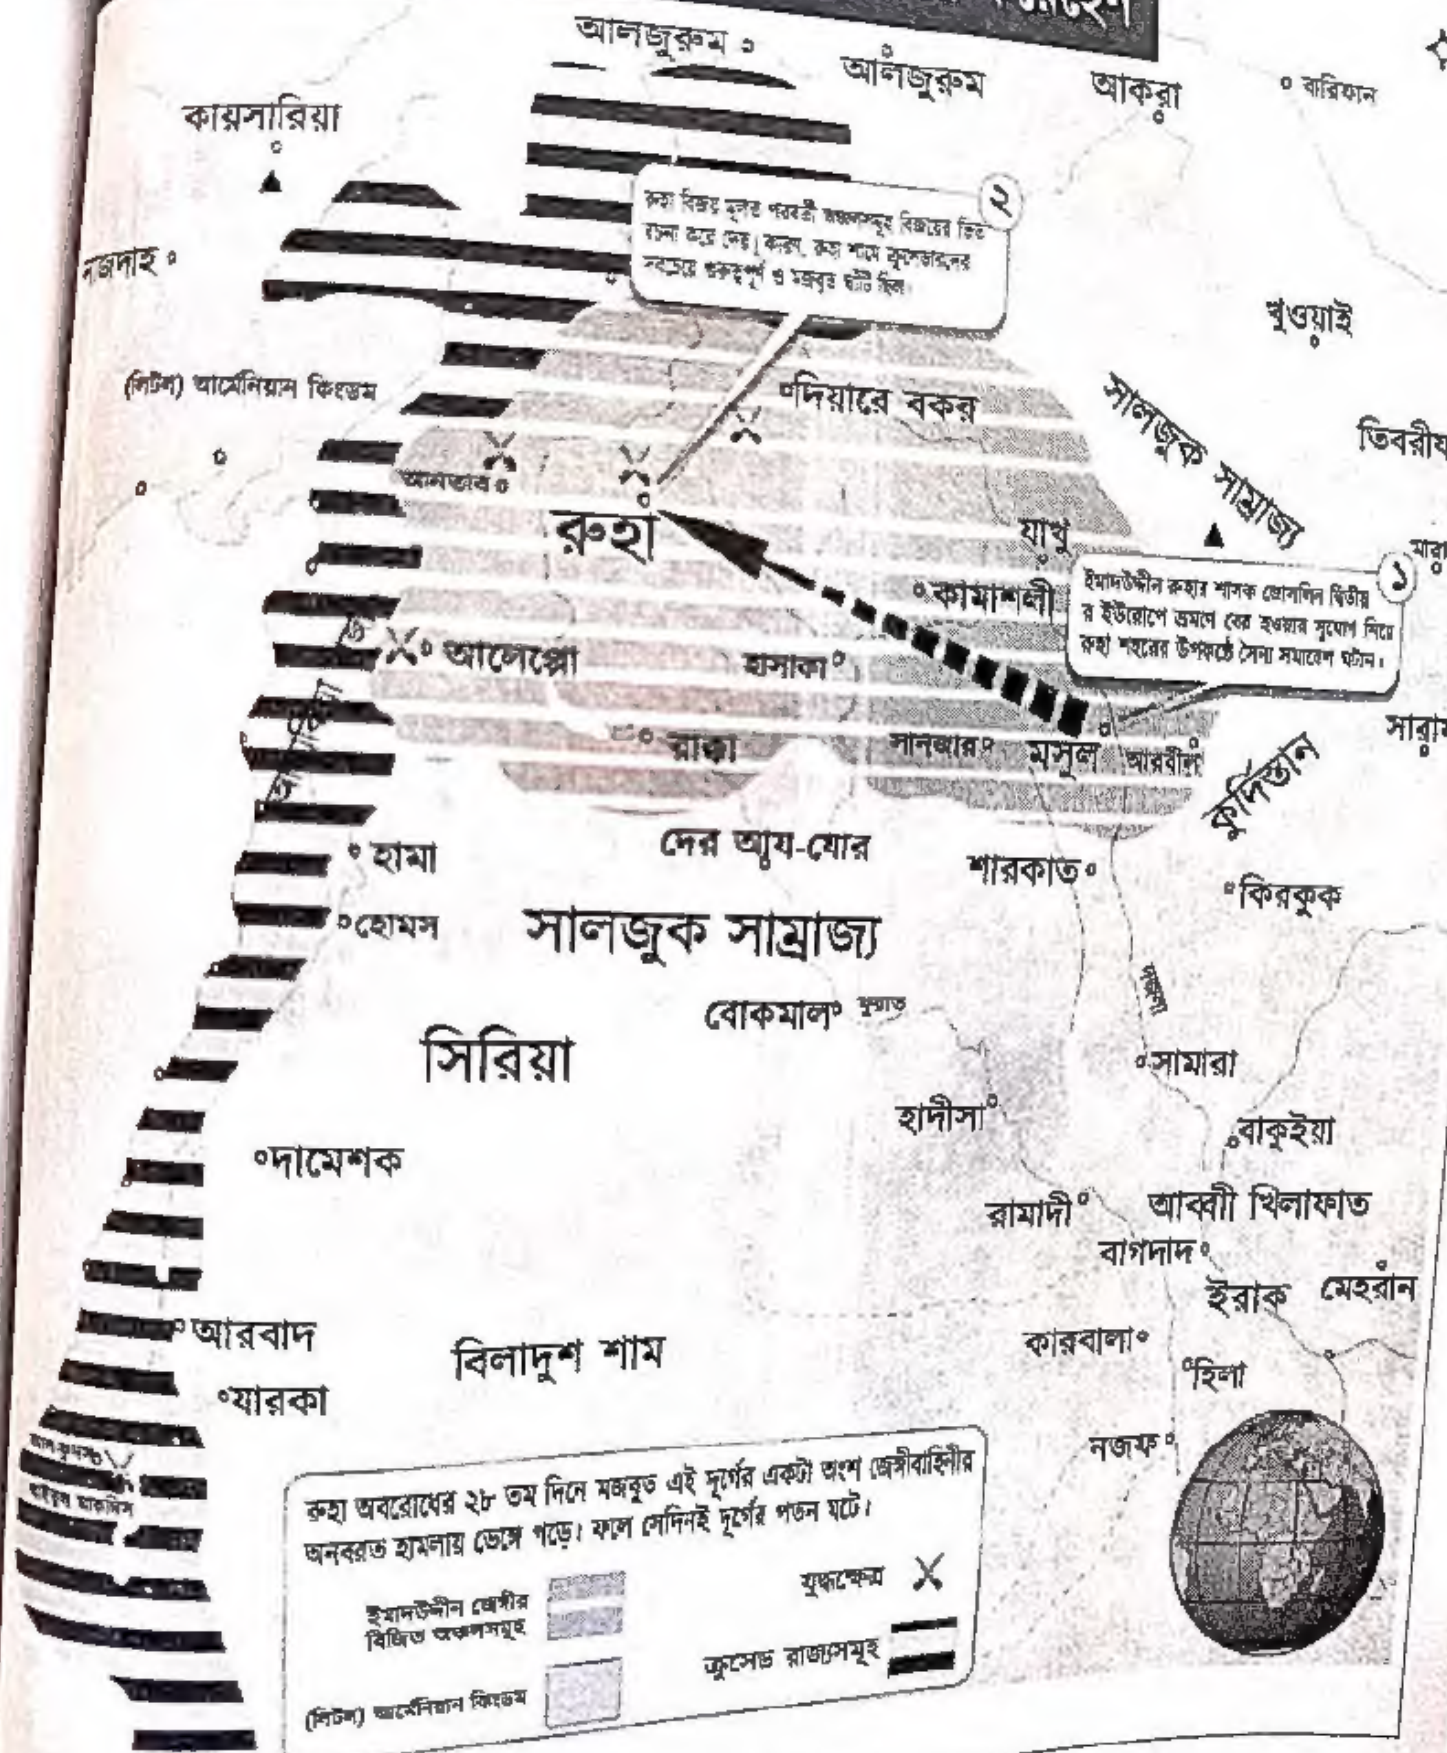 আলজুরুম
আলজুরুম
আকরা
বারিফান
কায়সারিয়া
২
রুহা বিজয় মূলত পরবর্তী অঞ্চলসমূহ বিজয়ের ভিত
রচনা করে দেয়। কারণ, রুহা শামে ক্রুসেডারদের
সবচেয়ে গুরুত্বপূর্ণ ও মজবুত ঘাঁটি ছিল।
নজদাহ
খুওয়াই
(লিটল) আর্মেনিয়ান কিংডম
দিয়ারে বকর
সালজুক সাম্রাজ্য
তিবরীয
আনতাব
রুহা
যাখু
মারা
১
ইমাদউদ্দীন রুহার শাসক জোসলিন দ্বিতীয়
র ইউরোপে ভ্রমণে বের হওয়ার সুযোগ নিয়ে
রুহা শহরের উপকণ্ঠে সৈন্য সমাবেশ ঘটান।
কামাশলী
আলেপ্পো
হাসাকা
রাক্কা
সানজার
মসূল
আরবীল
সারা
কুর্দিস্তান
দের আয-যোর
হামা
শারকাত
কিরকুক
হোমস
সালজুক সাম্রাজ্য
বোকমাল
ফুরাত
দজলা
সিরিয়া
সামারা
হাদীসা
বাকুইয়া
দামেশক
রামাদী
আব্বাী খিলাফাত
বাগদাদ
ইরাক
মেহরান
আরবাদ
বিলাদুশ শাম
কারবালা
হিলা
যারকা
নজফ
আল-কুদস
রুহা অবরোধের ২৮ তম দিনে মজবুত এই দূর্গের একটা অংশ জেঙ্গীবাহিনীর
অনবরত হামলায় ভেঙ্গে পড়ে। ফলে সেদিনই দূর্গের পতন ঘটে।
ইমাদউদ্দীন জেঙ্গীর
বিজিত অঞ্চলসমূহ
যুদ্ধক্ষেত্র
(লিটল) আর্মেনিয়ান কিংডম
ক্রুসেড রাজ্যসমূহ